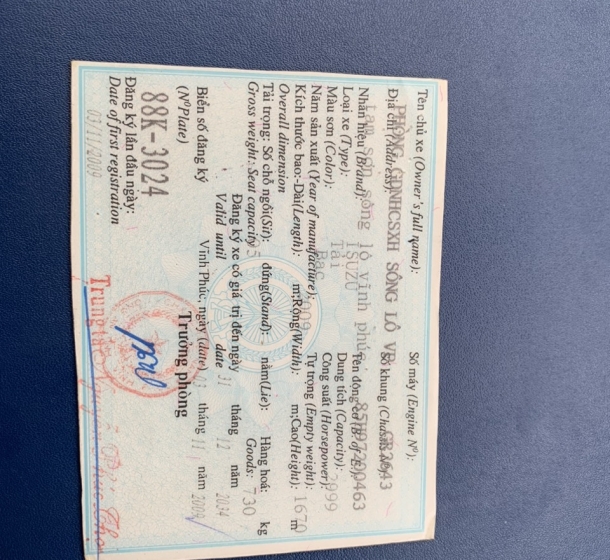 Tên chủ xe (Owner's full name): Số máy (Engine Nº):
PHÒNG GDNHCSXH SÔNG LÔ VP
Địa chỉ (Address): Số khung (Chassis Nº):
sông lô vĩnh phúc
Nhãn hiệu (Brand): ISUZU
Loại xe (Type): Tải Dung tích (Capacity): 2999
Màu sơn (Color): Bạc Công suất (Horsepower):
Năm sản xuất (Year of manufacture): Tự trọng (Empty weight):
Kích thước bao:-Dài(Length): m;Rộng(Width): m;Cao(Height): 1670 m
Overall dimension
Tải trọng: Số chỗ ngồi(Sit): đứng(Stand): nằm(Lie): Hàng hoá: kg
Gross weight: Seat capacity Goods: 730
Đăng ký xe có giá trị đến ngày 31 tháng 12 năm 2034
Valid until date
Biển số đăng ký Vĩnh Phúc, ngày (date) 03 tháng 11 năm 2009
(NºPlate) Trưởng phòng
88K-3024
Đăng ký lần đầu ngày:
Date of first registration
03/11/2009